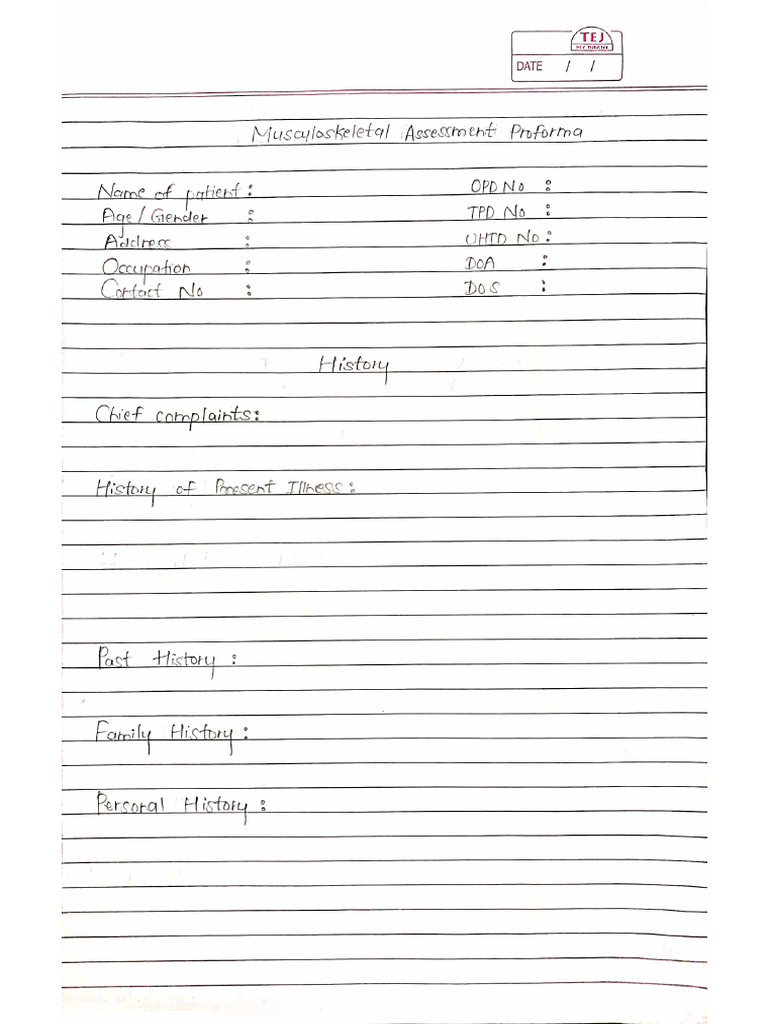 TEJ
MY BRAND
DATE / /
Musculoskeletal Assessment Proforma
Name of patient : OPD No :
Age / Gender : IPD No :
Address : UHID No :
Occupation : DOA :
Contact No : DOS :
History
Chief complaints:
History of Present Illness :
Past History :
Family History :
Personal History :